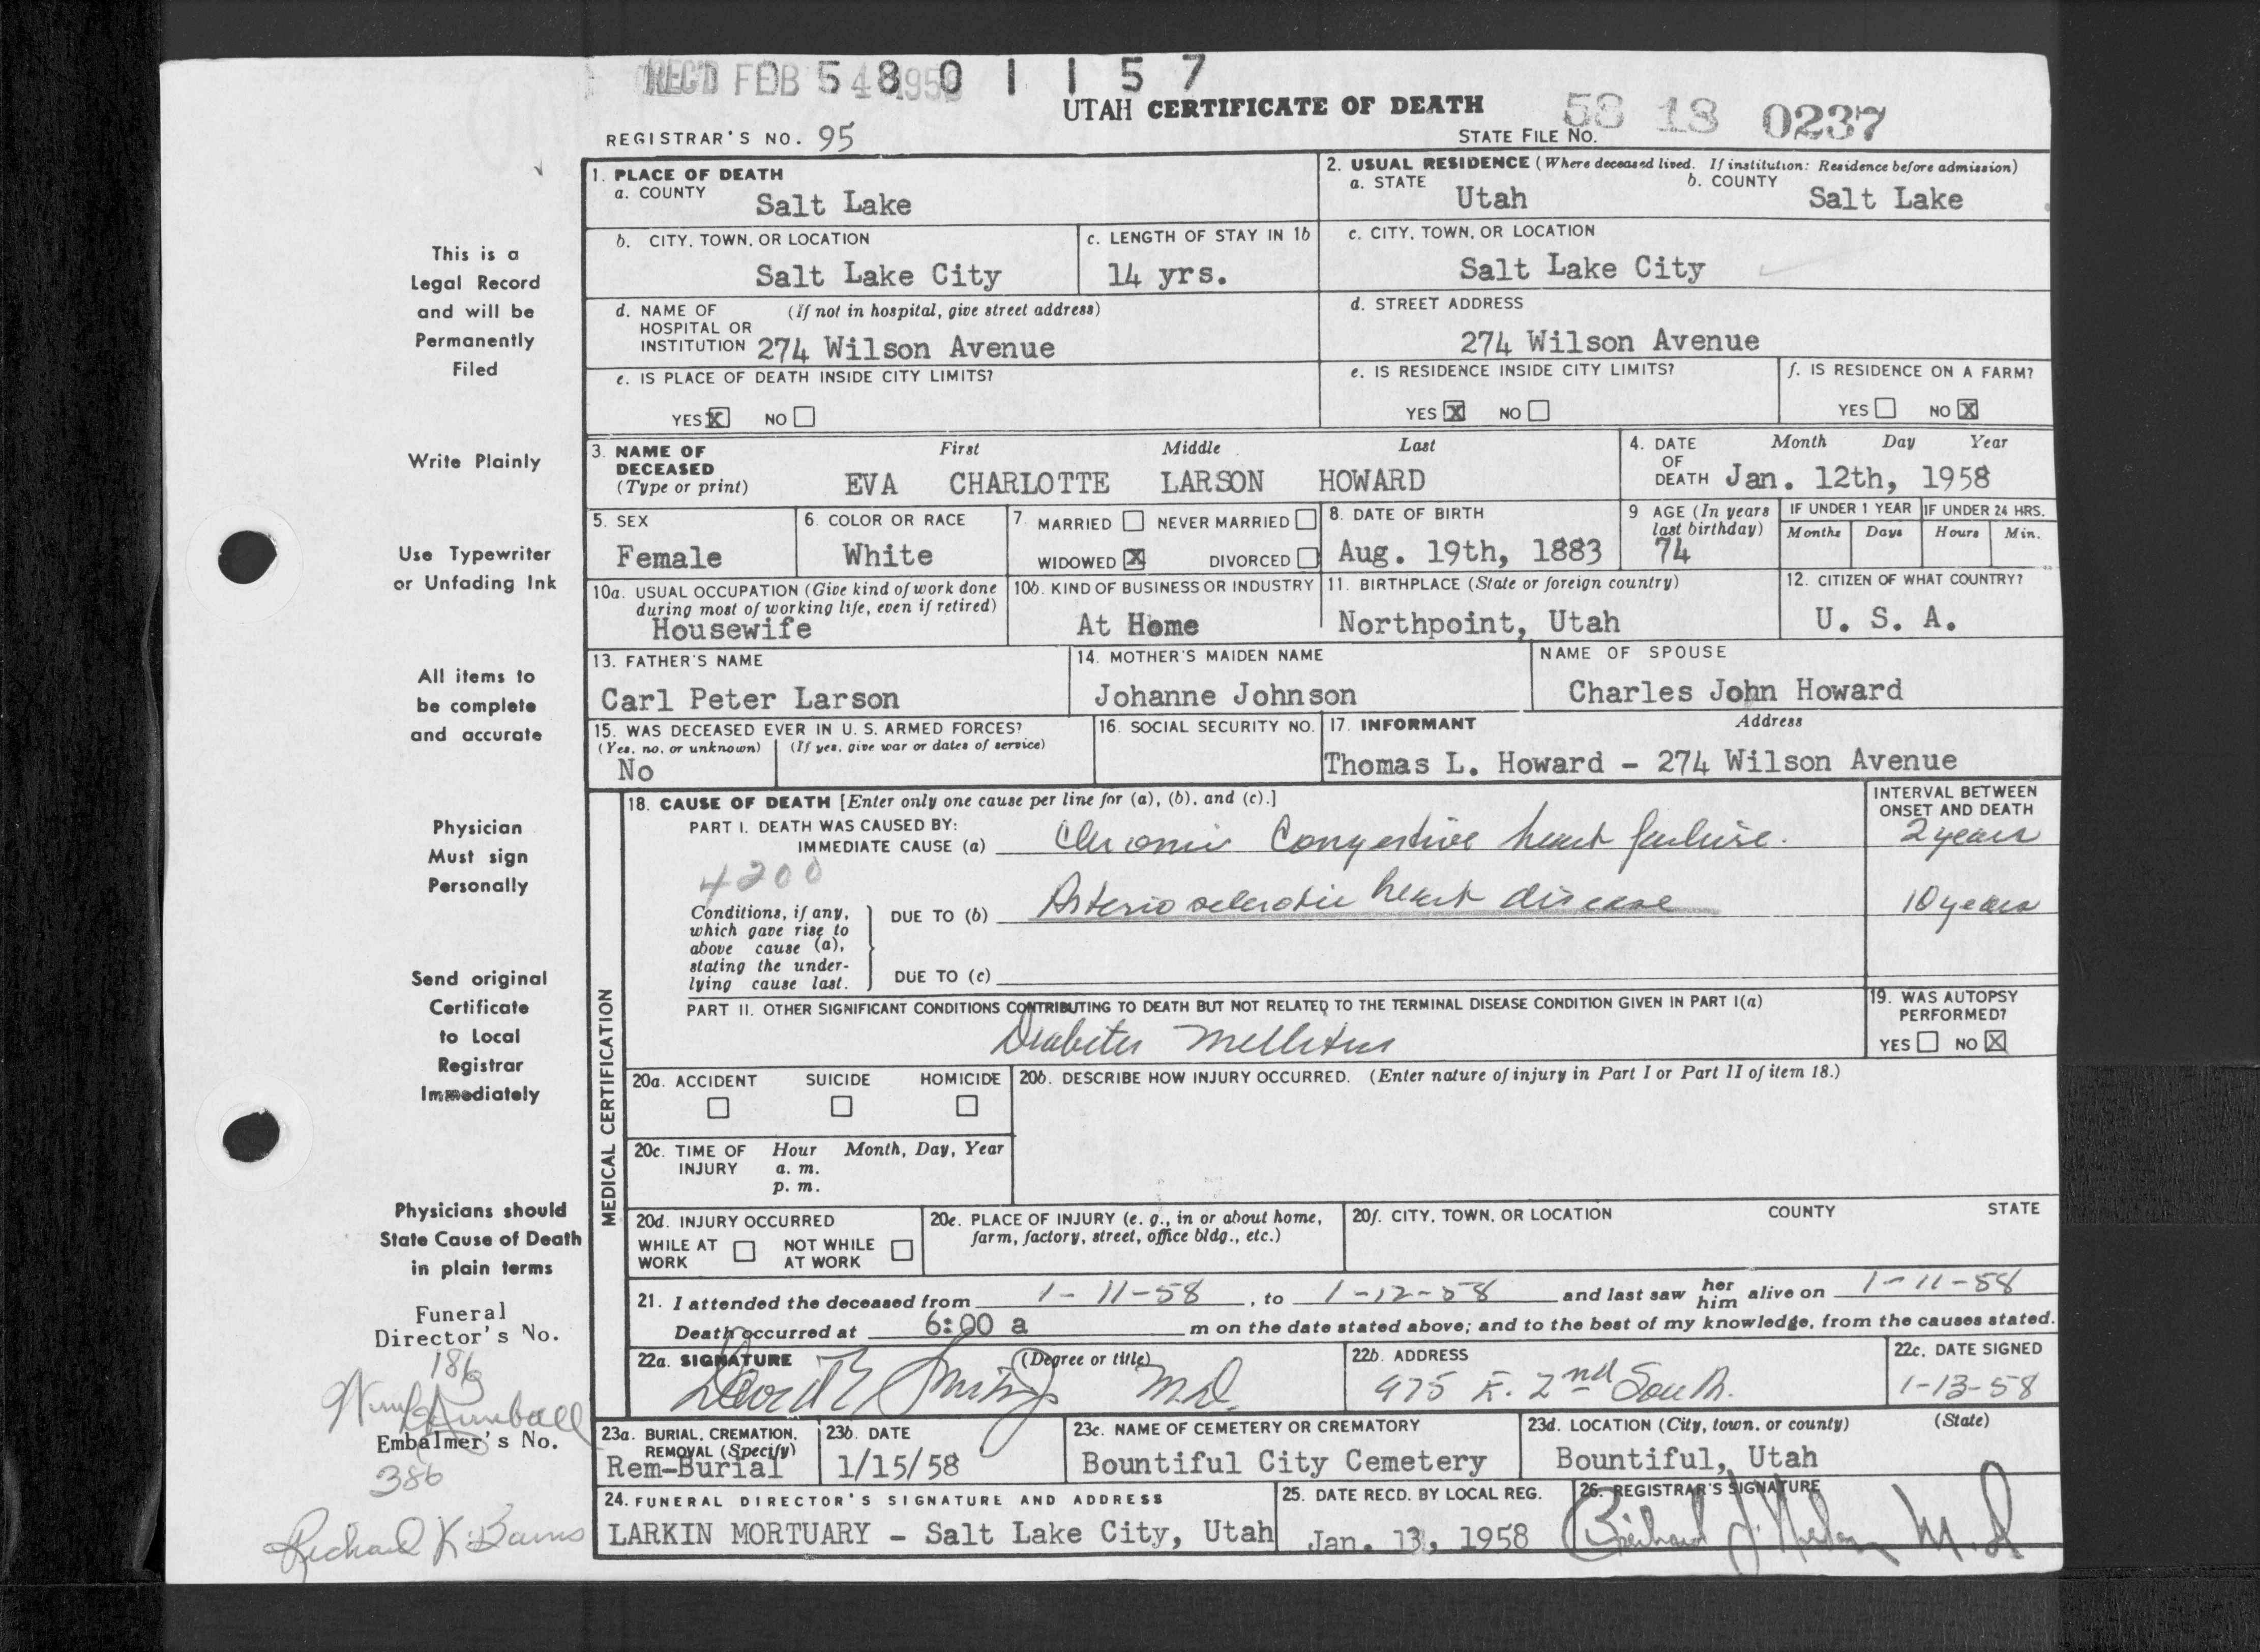 REC'D FEB 4 1958
5 8 0 1 1 5 7
UTAH CERTIFICATE OF DEATH
58 18 0237
REGISTRAR'S NO. 95
STATE FILE NO.
1. PLACE OF DEATH
a. COUNTY
Salt Lake
2. USUAL RESIDENCE (Where deceased lived. If institution: Residence before admission)
a. STATE b. COUNTY
Utah Salt Lake
b. CITY, TOWN, OR LOCATION
Salt Lake City
c. LENGTH OF STAY IN 1b
14 yrs.
c. CITY, TOWN, OR LOCATION
Salt Lake City
d. NAME OF (If not in hospital, give street address)
HOSPITAL OR
INSTITUTION 274 Wilson Avenue
d. STREET ADDRESS
274 Wilson Avenue
e. IS PLACE OF DEATH INSIDE CITY LIMITS?
YES X NO
e. IS RESIDENCE INSIDE CITY LIMITS?
YES X NO
f. IS RESIDENCE ON A FARM?
YES NO X
3. NAME OF First Middle Last
DECEASED
(Type or print) EVA CHARLOTTE LARSON HOWARD
4. DATE Month Day Year
OF
DEATH Jan. 12th, 1958
5. SEX
Female
6. COLOR OR RACE
White
7 MARRIED NEVER MARRIED
WIDOWED X DIVORCED
8. DATE OF BIRTH
Aug. 19th, 1883
9 AGE (In years
last birthday)
74
IF UNDER 1 YEAR
Months Days
IF UNDER 24 HRS.
Hours Min.
10a. USUAL OCCUPATION (Give kind of work done
during most of working life, even if retired)
Housewife
10b. KIND OF BUSINESS OR INDUSTRY
At Home
11. BIRTHPLACE (State or foreign country)
Northpoint, Utah
12. CITIZEN OF WHAT COUNTRY?
U. S. A.
13. FATHER'S NAME
Carl Peter Larson
14. MOTHER'S MAIDEN NAME
Johanne Johnson
NAME OF SPOUSE
Charles John Howard
15. WAS DECEASED EVER IN U. S. ARMED FORCES?
(Yes, no, or unknown) (If yes, give war or dates of service)
No
16. SOCIAL SECURITY NO.
17. INFORMANT Address
Thomas L. Howard - 274 Wilson Avenue
MEDICAL CERTIFICATION
18. CAUSE OF DEATH [Enter only one cause per line for (a), (b), and (c).]
INTERVAL BETWEEN
ONSET AND DEATH
PART I. DEATH WAS CAUSED BY:
IMMEDIATE CAUSE (a) Chronic Congestive heart failure. 2 years
4200
Conditions, if any,
which gave rise to
above cause (a),
stating the under-
lying cause last.
DUE TO (b) Arteriosclerotic heart disease 10 years
DUE TO (c)
PART II. OTHER SIGNIFICANT CONDITIONS CONTRIBUTING TO DEATH BUT NOT RELATED TO THE TERMINAL DISEASE CONDITION GIVEN IN PART I(a)
Diabetes Mellitus
19. WAS AUTOPSY
PERFORMED?
YES NO X
20a. ACCIDENT SUICIDE HOMICIDE
20b. DESCRIBE HOW INJURY OCCURRED. (Enter nature of injury in Part I or Part II of item 18.)
20c. TIME OF Hour Month, Day, Year
INJURY a. m.
p. m.
20d. INJURY OCCURRED
WHILE AT NOT WHILE
WORK AT WORK
20e. PLACE OF INJURY (e. g., in or about home,
farm, factory, street, office bldg., etc.)
20f. CITY, TOWN, OR LOCATION COUNTY STATE
21. I attended the deceased from 1-11-58, to 1-12-58 and last saw her him alive on 1-11-58
Death occurred at 6:00 a m on the date stated above; and to the best of my knowledge, from the causes stated.
22a. SIGNATURE (Degree or title)
David E Smith MD.
22b. ADDRESS
975 E. 2nd South.
22c. DATE SIGNED
1-13-58
23a. BURIAL, CREMATION,
REMOVAL (Specify)
Rem-Burial
23b. DATE
1/15/58
23c. NAME OF CEMETERY OR CREMATORY
Bountiful City Cemetery
23d. LOCATION (City, town, or county) (State)
Bountiful, Utah
24. FUNERAL DIRECTOR'S SIGNATURE AND ADDRESS
LARKIN MORTUARY - Salt Lake City, Utah
25. DATE RECD. BY LOCAL REG.
Jan. 13, 1958
26. REGISTRAR'S SIGNATURE
M.D
This is a
Legal Record
and will be
Permanently
Filed
Write Plainly
Use Typewriter
or Unfading Ink
All items to
be complete
and accurate
Physician
Must sign
Personally
Send original
Certificate
to Local
Registrar
Immediately
Physicians should
State Cause of Death
in plain terms
Funeral
Director's No.
186
Embalmer's No.
386
Richard K. Barns